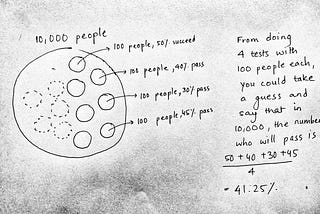 10,000 people
100 people, 50% succeed
100 people, 40% pass
100 people, 30% pass
100 people, 45% pass
From doing
4 tests with
100 people each,
you could take
a guess and
say that in
10,000, the number
who will pass is
50 + 40 + 30 + 45
4
= 41.25%.